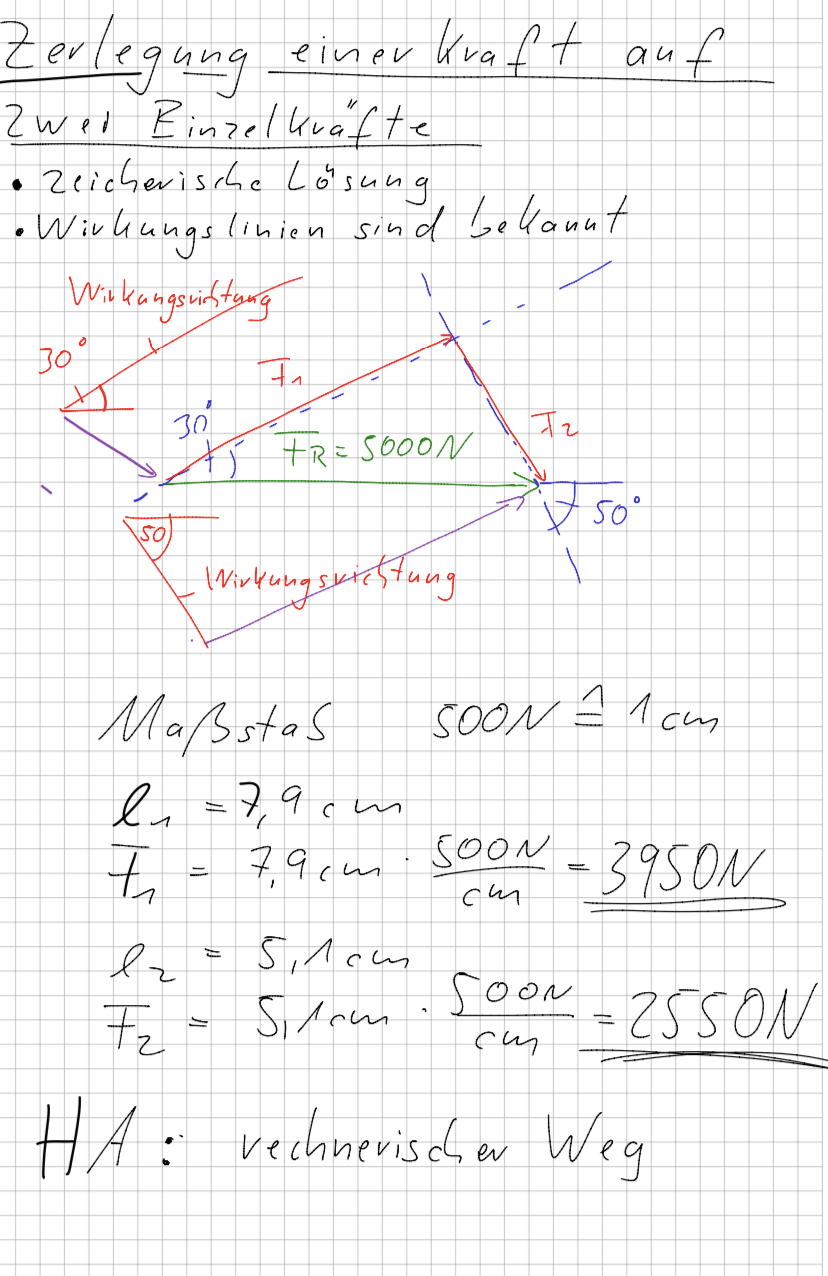 Zerlegung einer Kraft auf
Zwei Einzelkräfte
• Zeicherische Lösung
• Wirkungslinien sind bekannt
Wirkungsrichtung
30°
F₁
30°
F_R = 5000N
F₂
50°
50
Wirkungsrichtung
Maßstab 500N ≙ 1cm
l₁ = 7,9cm
F₁ = 7,9cm · 500N/cm = 3950N
l₂ = 5,1cm
F₂ = 5,1cm · 500N/cm = 2550N
HA: rechnerischer Weg